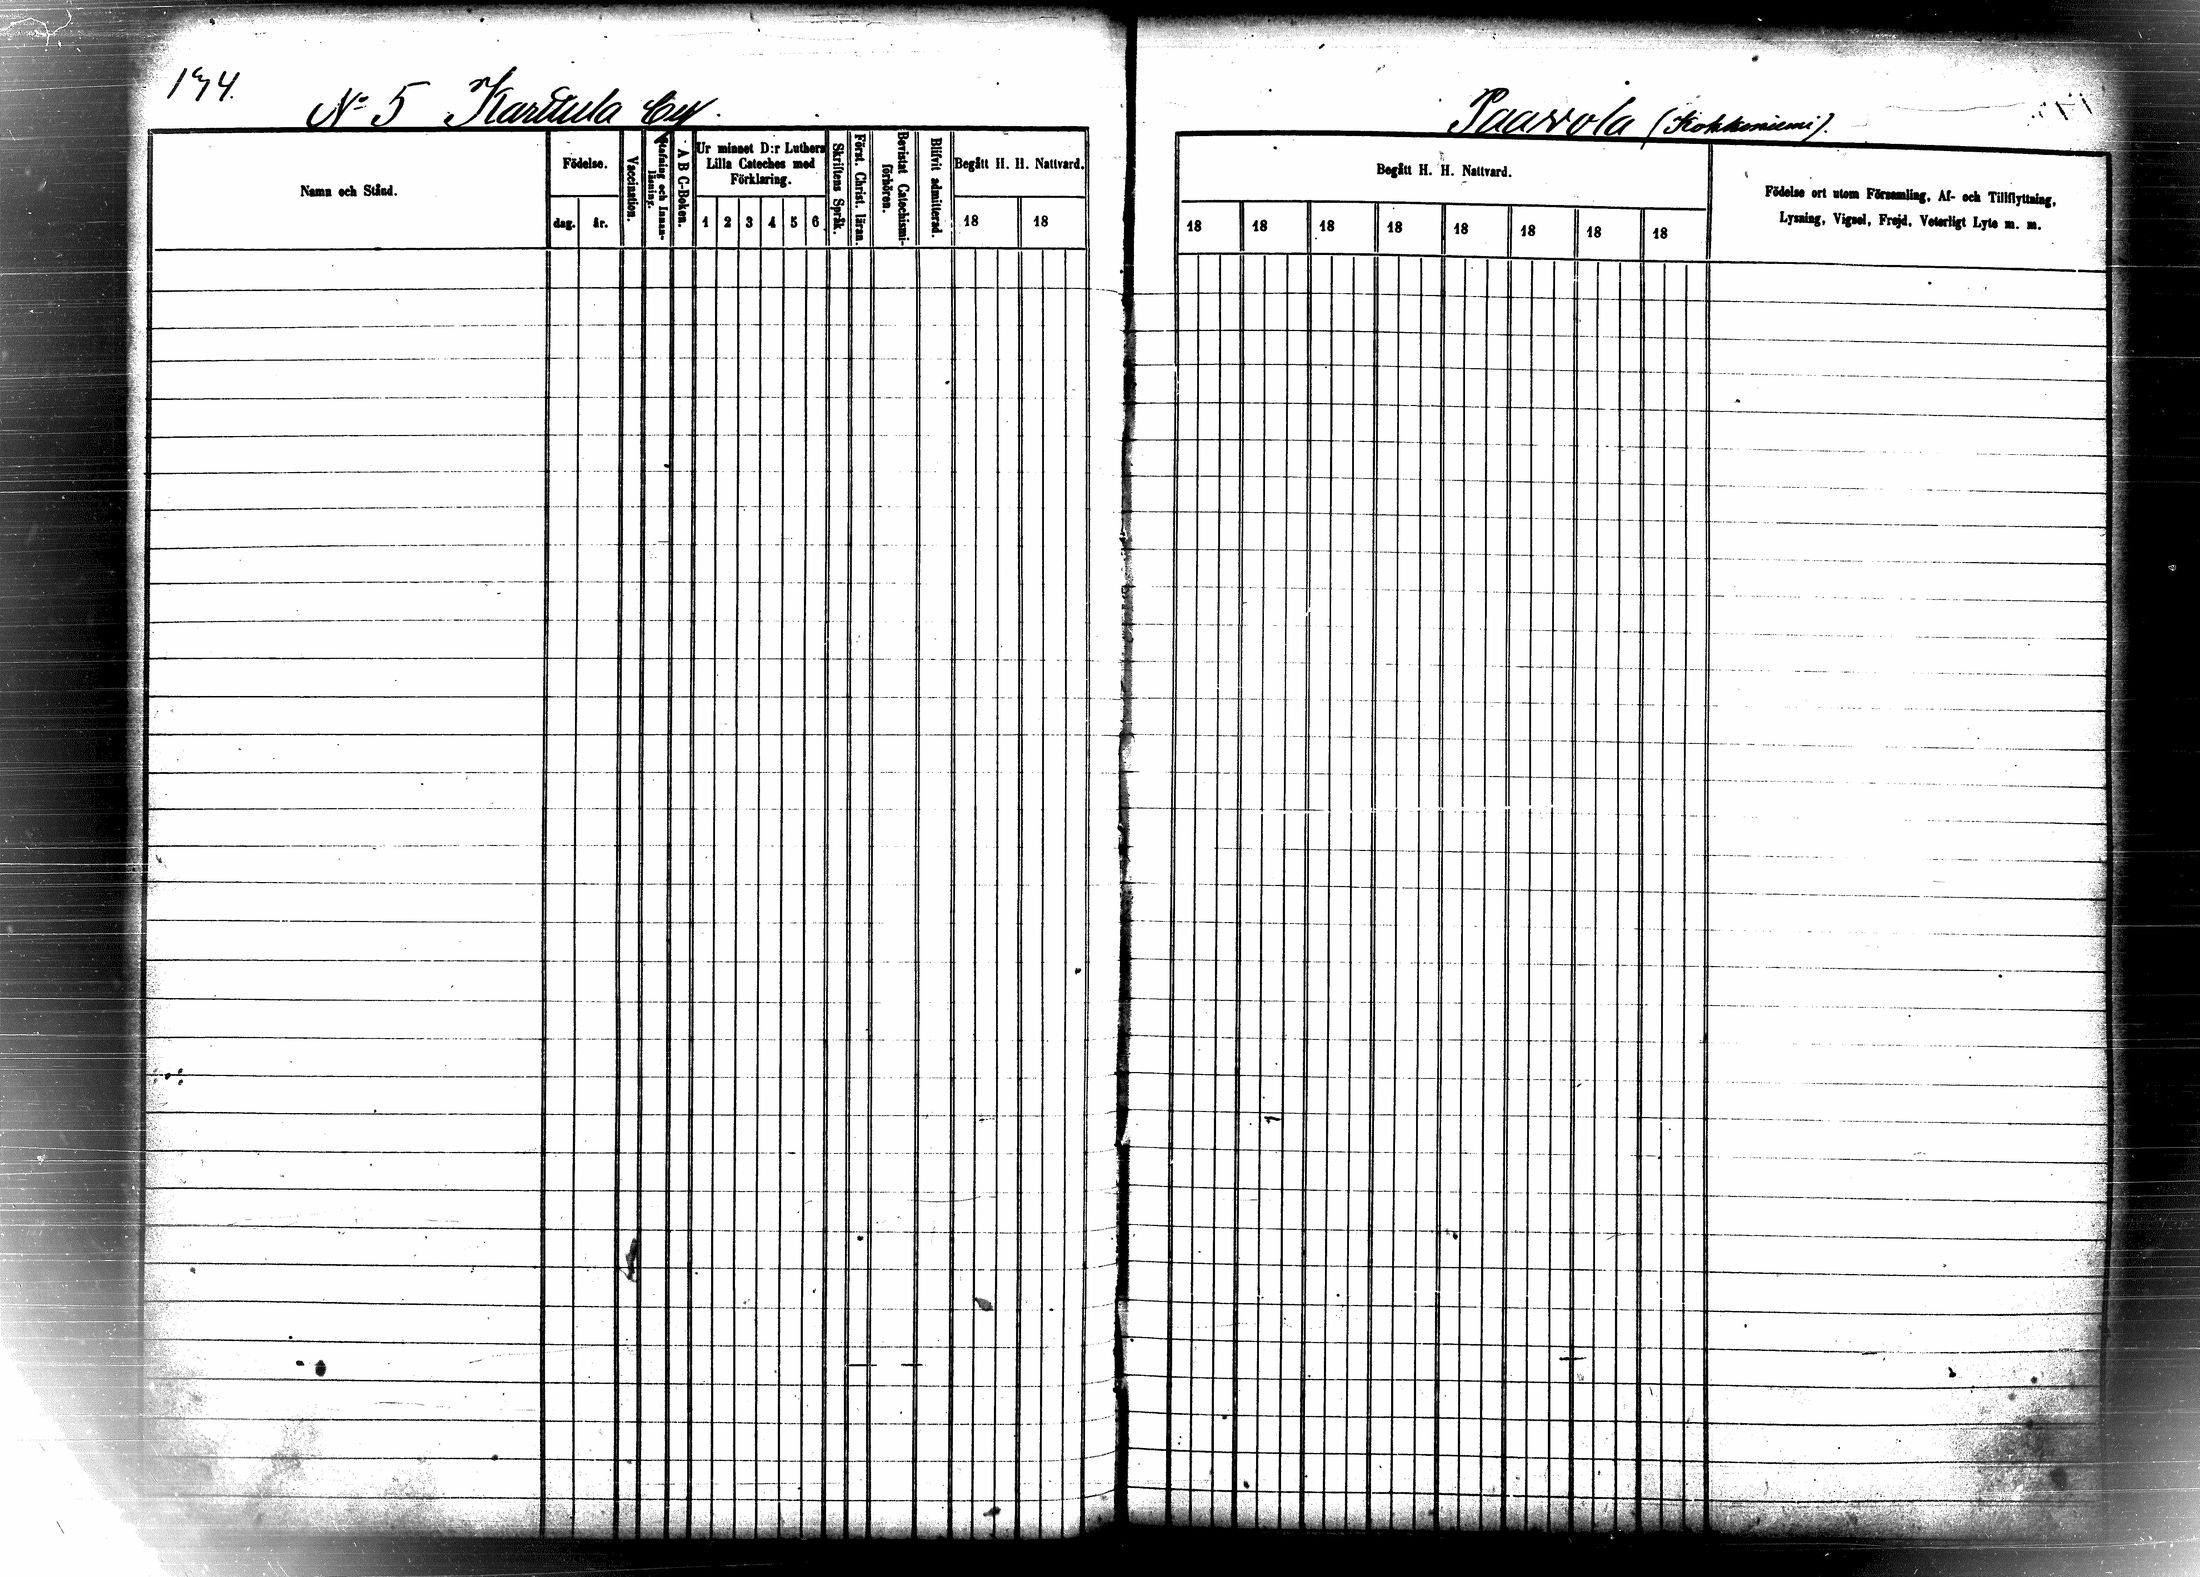 174.
No 5 Karttula by.
Namn och Stånd.
Födelse.
dag. år.
Vaccination.
Stafning och Innan-läsning.
A B C-Boken.
Ur minnet D:r Luthers
Lilla Cateches med
Förklaring.
1 2 3 4 5 6
Skriftens Språk.
Först. Christ. läran.
Bevistat Catechismi-förhören.
Blifvit admitterad.
Begått H. H. Nattvard.
18 18
Paavola (Kokkoniemi).
Begått H. H. Nattvard.
18 18 18 18 18 18 18 18
Födelse ort utom Församling, Af- och Tillflyttning,
Lysning, Vigsel, Frejd, Veterligt Lyte m. m.